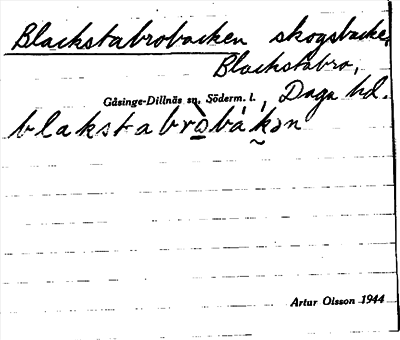 Blackstabrobacken skogsbacke,
Blackstabro,
Gåsinge-Dillnäs sn, Söderm. l., Daga hd.
blakstabrò̠bák̰ən
Artur Olsson 1944